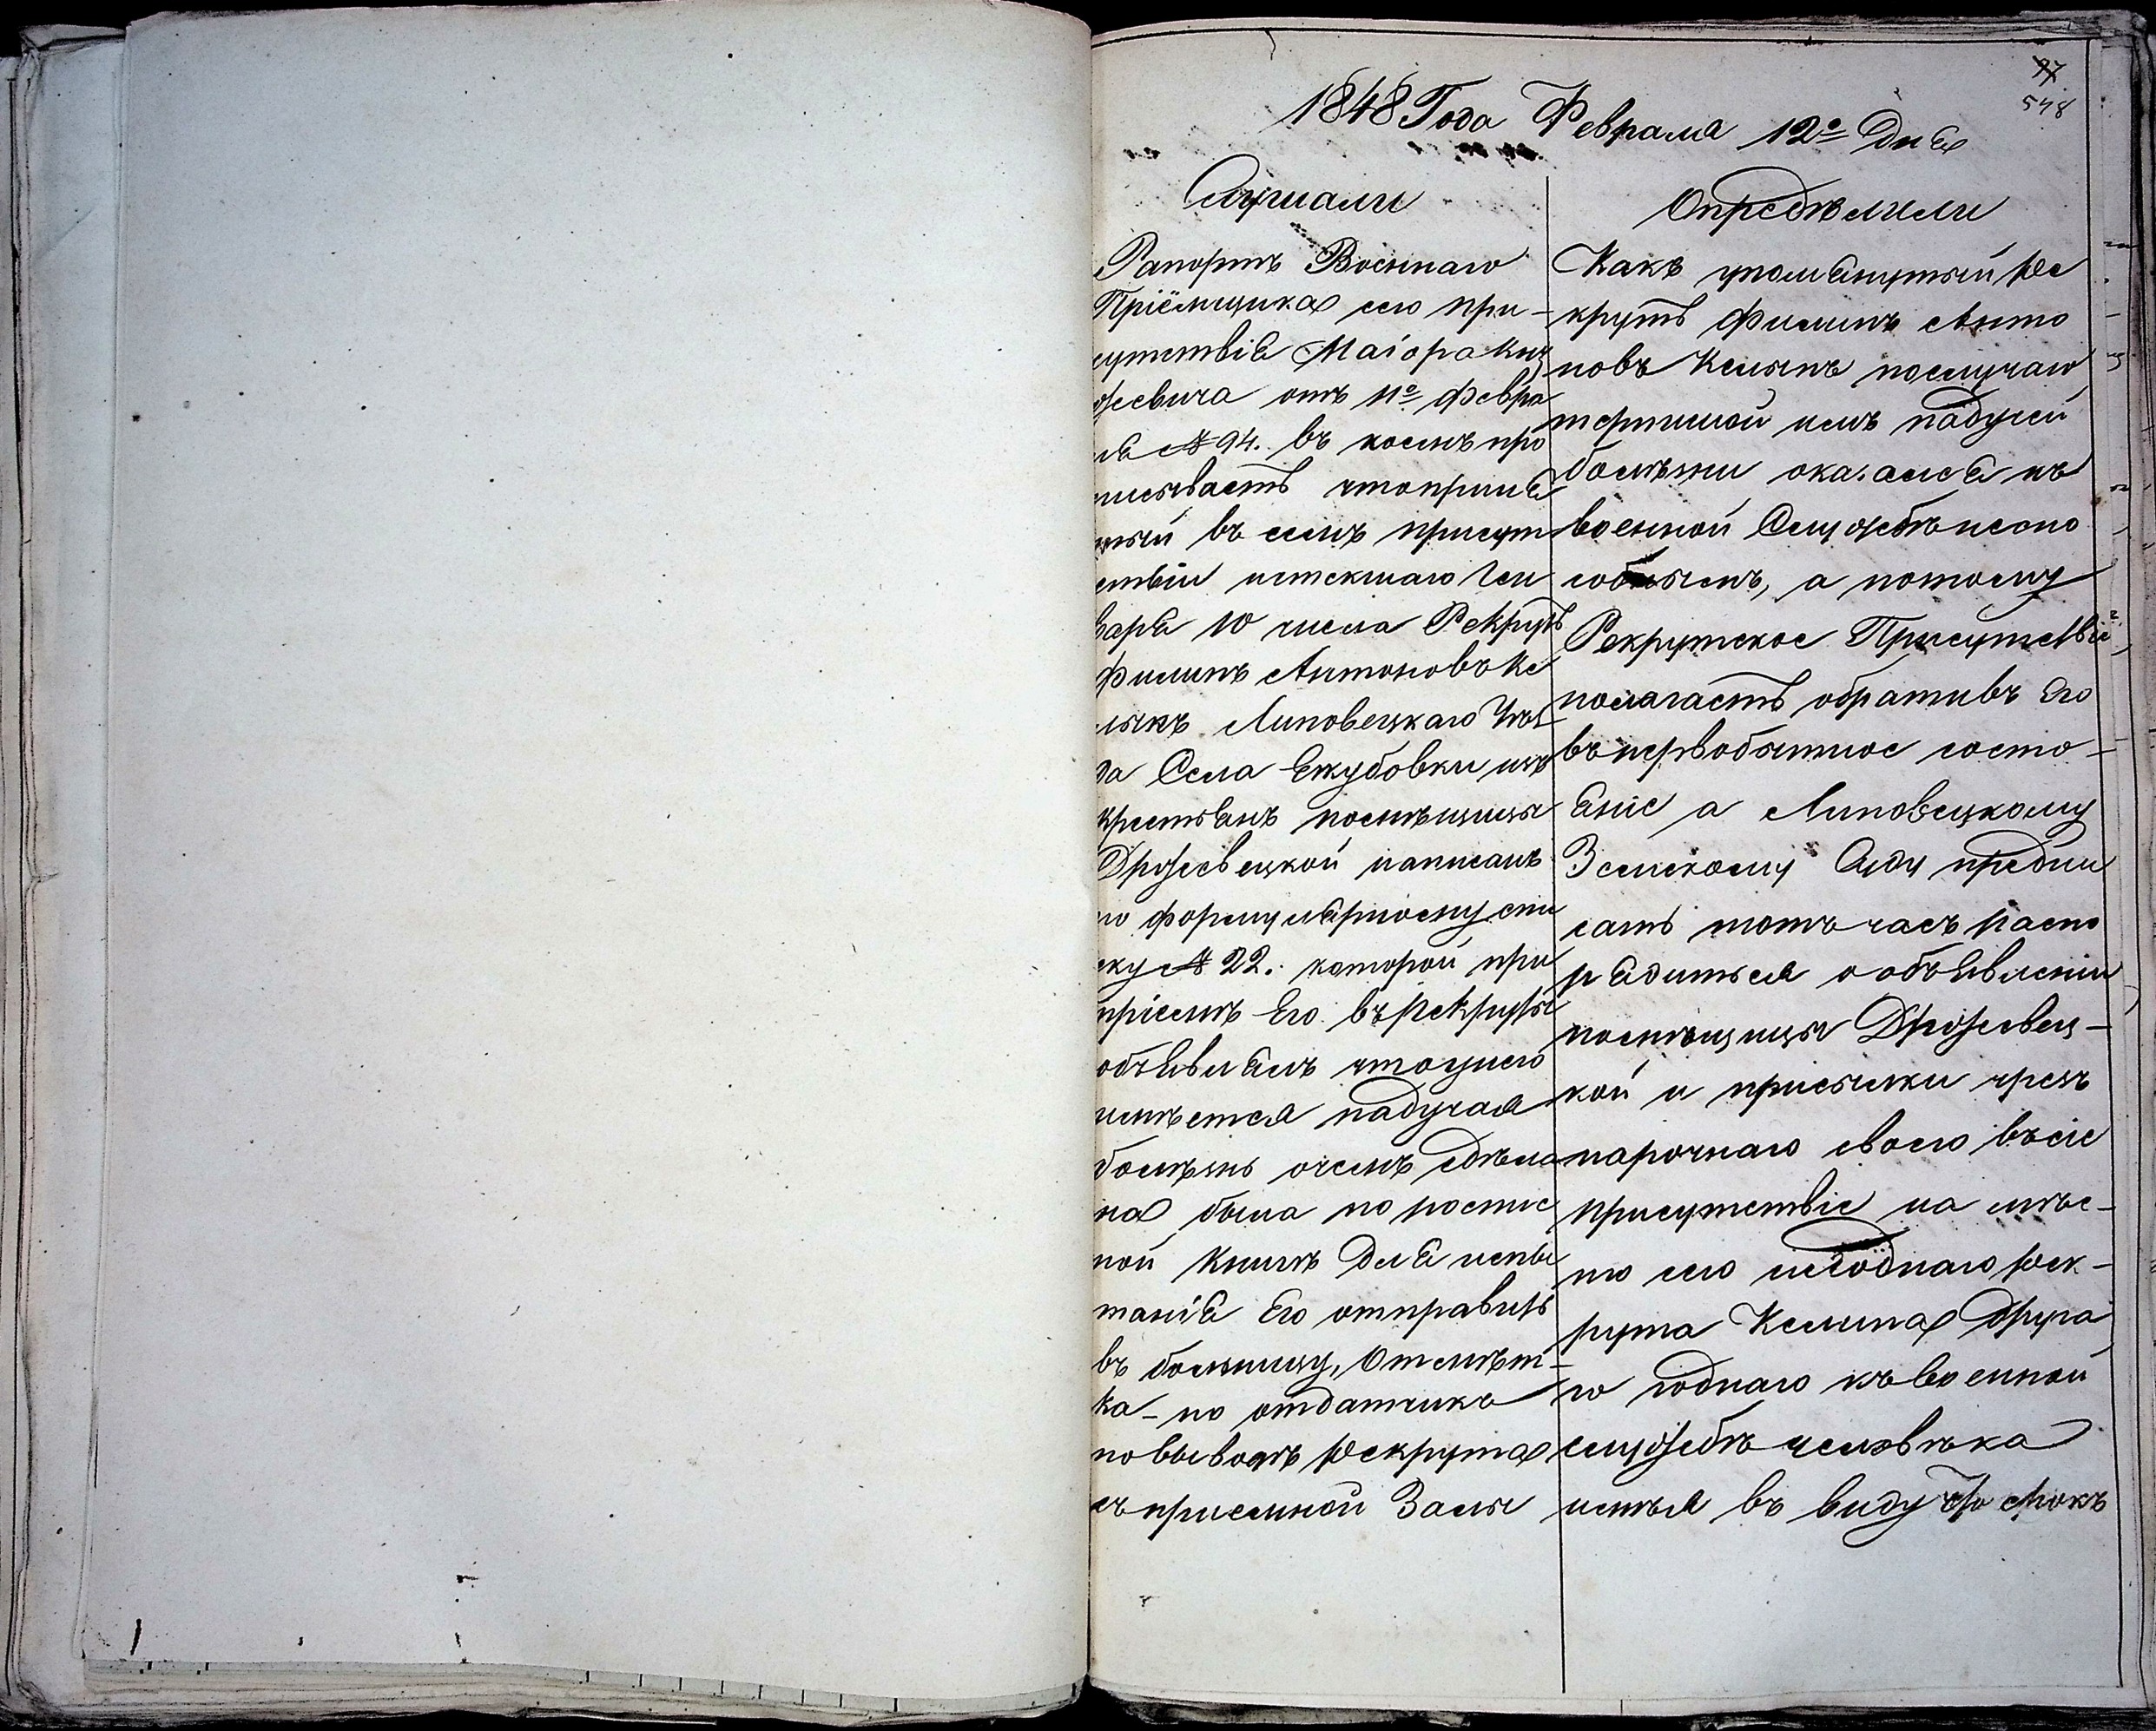 97
548
1848 Года Февраля 12º Дня
Слушали
Рапортъ Военнаго
Пріёмщика сего при-
сутствія Маіора Кна
жевича отъ 11º Февра
ля № 94. въ коемъ про
писываетъ что приня
тый въ семъ присут
ствіи истекшаго Ген
варя 10 числа Рекрутъ
Филипъ Антоновъ Ке
лыпъ Липовецкаго Уѣз
да Села Якубовки изъ
крестьянъ помѣщицы
Држевецкой написанъ
по формулярному спи
ску № 22. которой при
пріемѣ Его въ рекруты
объявлялъ что у него
имѣется падучая
болѣзнь о чемъ сдѣла
на была по роспис
ной Книгѣ Для испы
танія Его отправить
въ больницу, Отмѣт-
ка но отдатчикъ
по выводѣ рекрута
съ приемной Залы
Опредѣлили
Какъ упомянутый Ре
крутъ Филипъ Анто
новъ Келыпъ по случаю
терпимой имъ падучей
болѣзни оказался къ
военной Службѣ неспо
собнымъ, а потому
Рекрутское Присутствіе
полагаетъ обративъ Его
въ первобытное состо-
яніе а Липовецкому
Земскому Суду предпи
сать тотъ часъ распо
рядиться о объявленіи
помѣщицы Држевец-
кой и присылки чрезъ
нарочнаго своего въ сіе
присутствіе на мѣс-
то сего негоднаго рек-
рута Келипа друга
го годнаго къ военной
службѣ человѣка
имѣя въ виду что срокъ